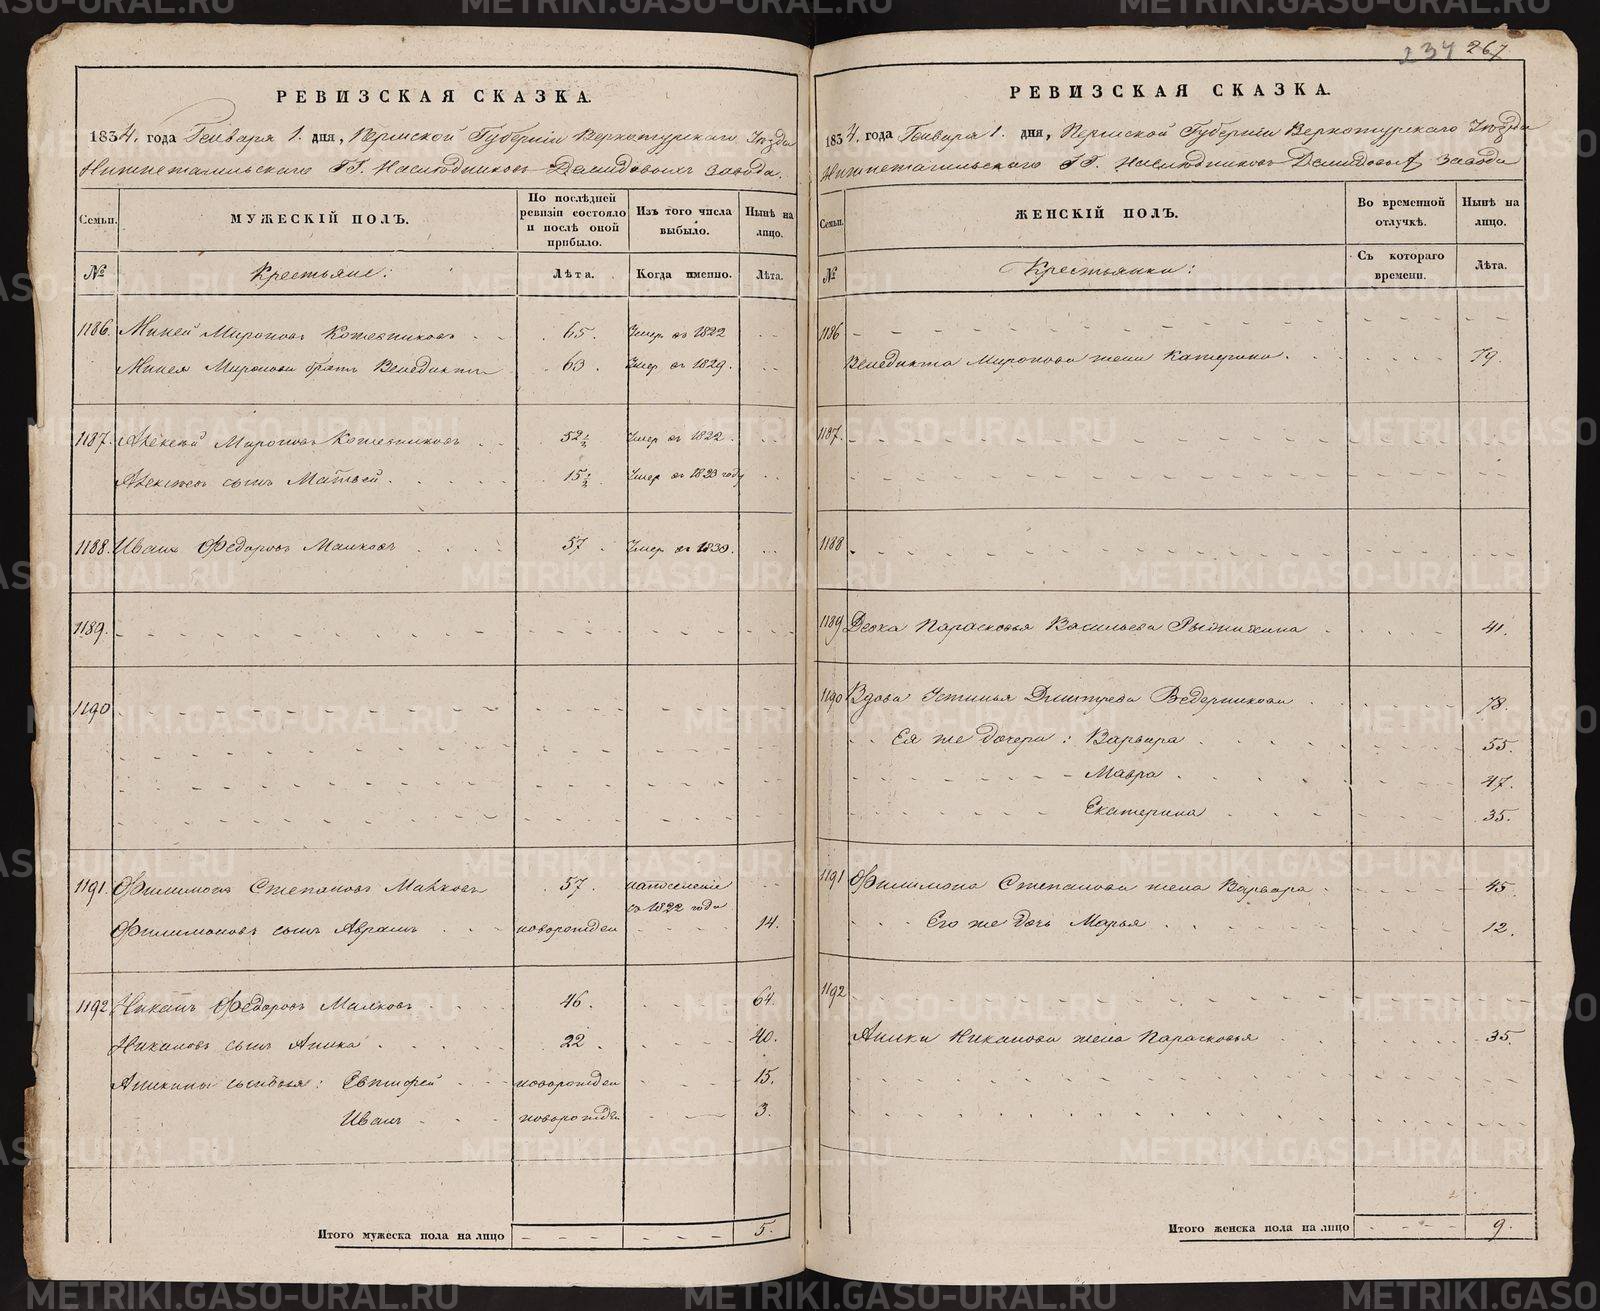 234 267
РЕВИЗСКАЯ СКАЗКА.
1834. года Генваря 1. дня, Пермской Губерніи Верхотурскаго Уѣзда
Нижнетагильскаго ГГ. Наслѣдниковъ Демидовыхъ завода.
Семьи. МУЖЕСКІЙ ПОЛЪ. По послѣдней ревизіи состояло и послѣ оной прибыло. Изъ того числа выбыло. Нынѣ на лицо.
№ Крестьяне: Лѣта. Когда именно. Лѣта.
1186. Миней Мироновъ Кожевниковъ 65. Умер. въ 1822
Минея Миронова братъ Венедиктъ 63. Умер. въ 1829.
1187. Алексѣй Мироновъ Кожевниковъ 52 1/2 Умер въ 1822.
Алексѣевъ сынъ Матвей 15 1/2 Умер въ 1833 году
1188. Иванъ Федоровъ Малковъ 57. Умер въ 1830.
1189.
1190
1191. Филимонъ Степановъ Малковъ 57. на поселеніе
въ 1822 года
Филимоновъ сынъ Авраамъ новорожден 14.
1192 Никапъ Федоровъ Малковъ 46. 64.
Никаповъ сынъ Аника 22. 40.
Аникины сыновья: Евтифей новорожден 15.
Иванъ новорожден 3.
Итого мужеска пола на лицо 5.
РЕВИЗСКАЯ СКАЗКА.
1834. года Генваря 1. дня, Пермской Губерніи Верхотурскаго Уѣзда
Нижнетагильскаго ГГ. Наслѣдниковъ Демидовыхъ завода
Семьи. ЖЕНСКІЙ ПОЛЪ. Во временной отлучкѣ. Нынѣ на лицо.
№ Крестьянки: Съ котораго времени. Лѣта.
1186
Венедикта Миронова жена Катерина. 79.
1187.
1188
1189 Девка Парасковья Васильева 41.
1190 Вдова Устинья Дмитрева Ведерникова 78.
Ея же дочери: Варвара 55.
Мавра 47.
Екатерина 35.
1191 Филимона Степанова жена Варвара 45.
Его же дочь Марья 12.
1192
Аники Никапова жена Парасковья 35.
Итого женска пола на лицо 9.
METRIKI.GASO-URAL.RU